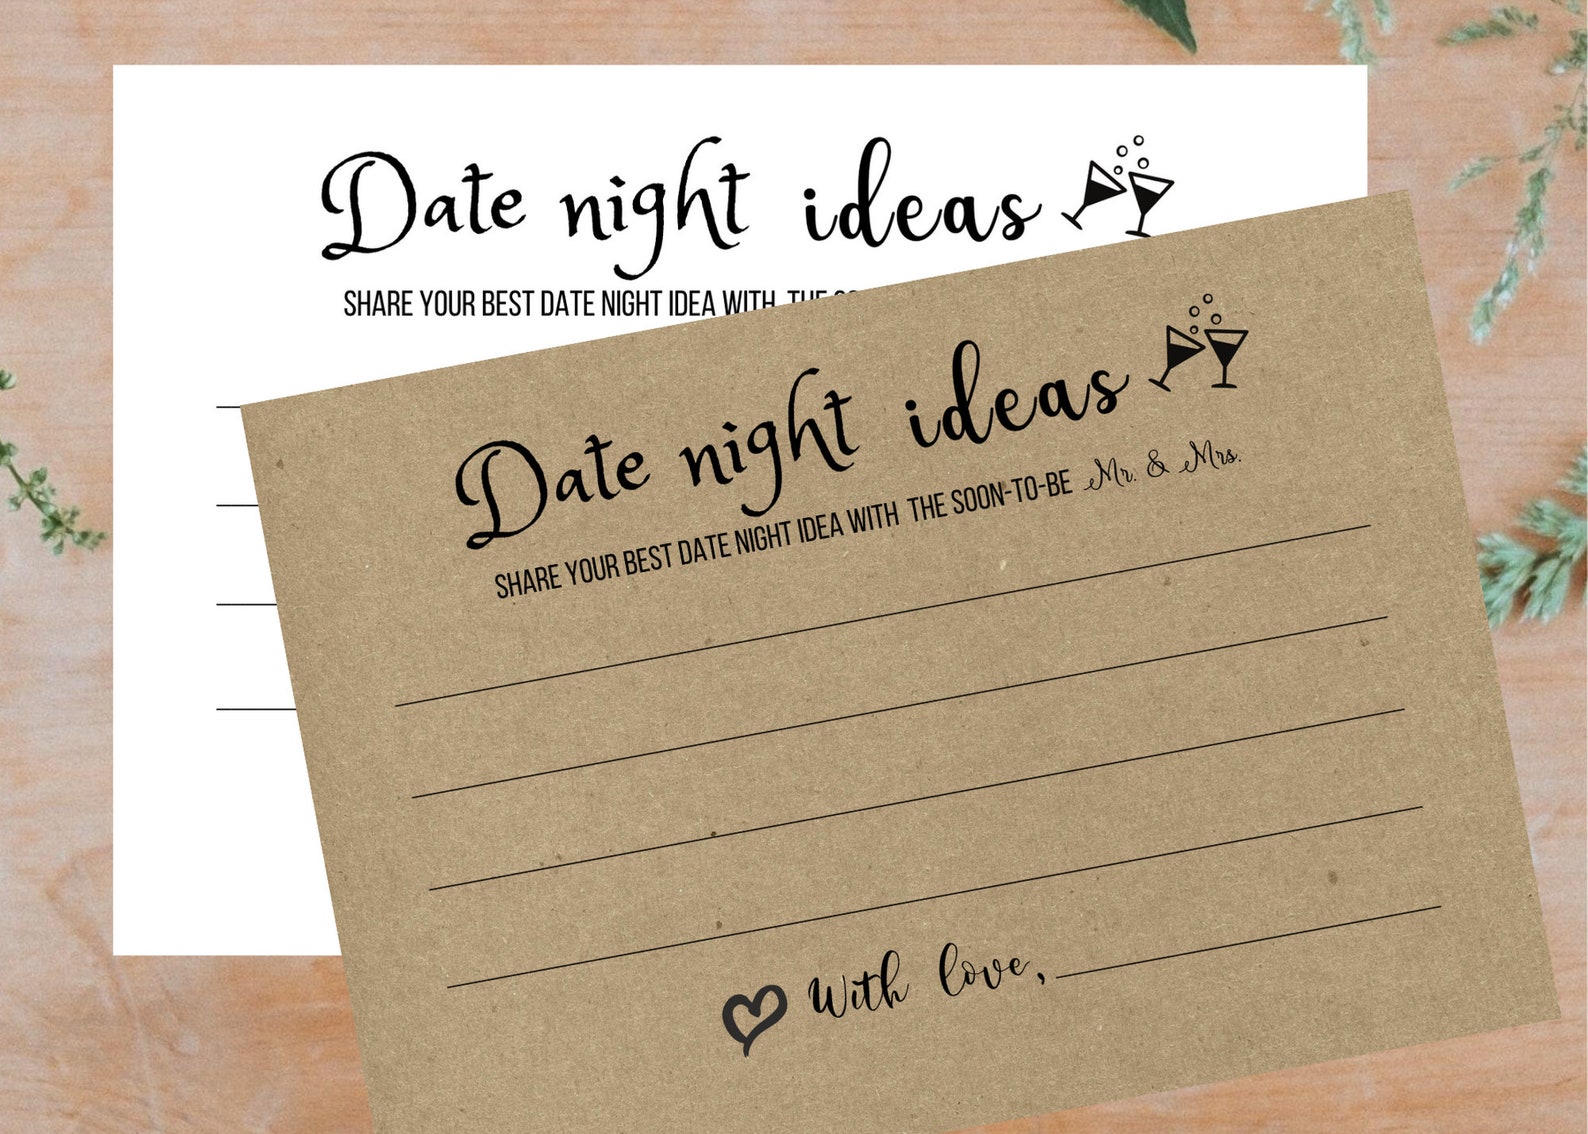 Date night ideas
SHARE YOUR BEST DATE NIGHT IDEA WITH THE
Date night ideas
SHARE YOUR BEST DATE NIGHT IDEA WITH THE SOON-TO-BE Mr. & Mrs.
With love,